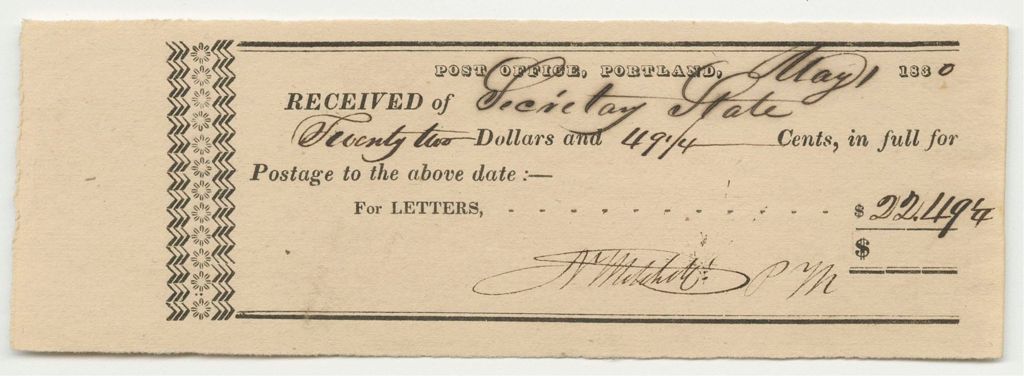 POST OFFICE, PORTLAND, May 1 1830
RECEIVED of Secretay State
Twenty two Dollars and 49 1/4 Cents, in full for
Postage to the above date :—
For LETTERS, - - - - - - - - - - - - $ 22.49 1/4
$
N Mitchell P M